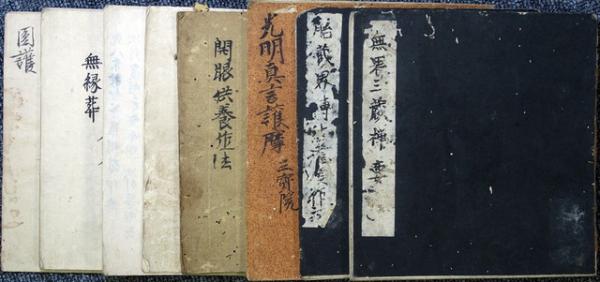 無畏三蔵禅要
胎蔵界
光明真言護摩
三齊院
開眼供養作法
無縁葬
圓護